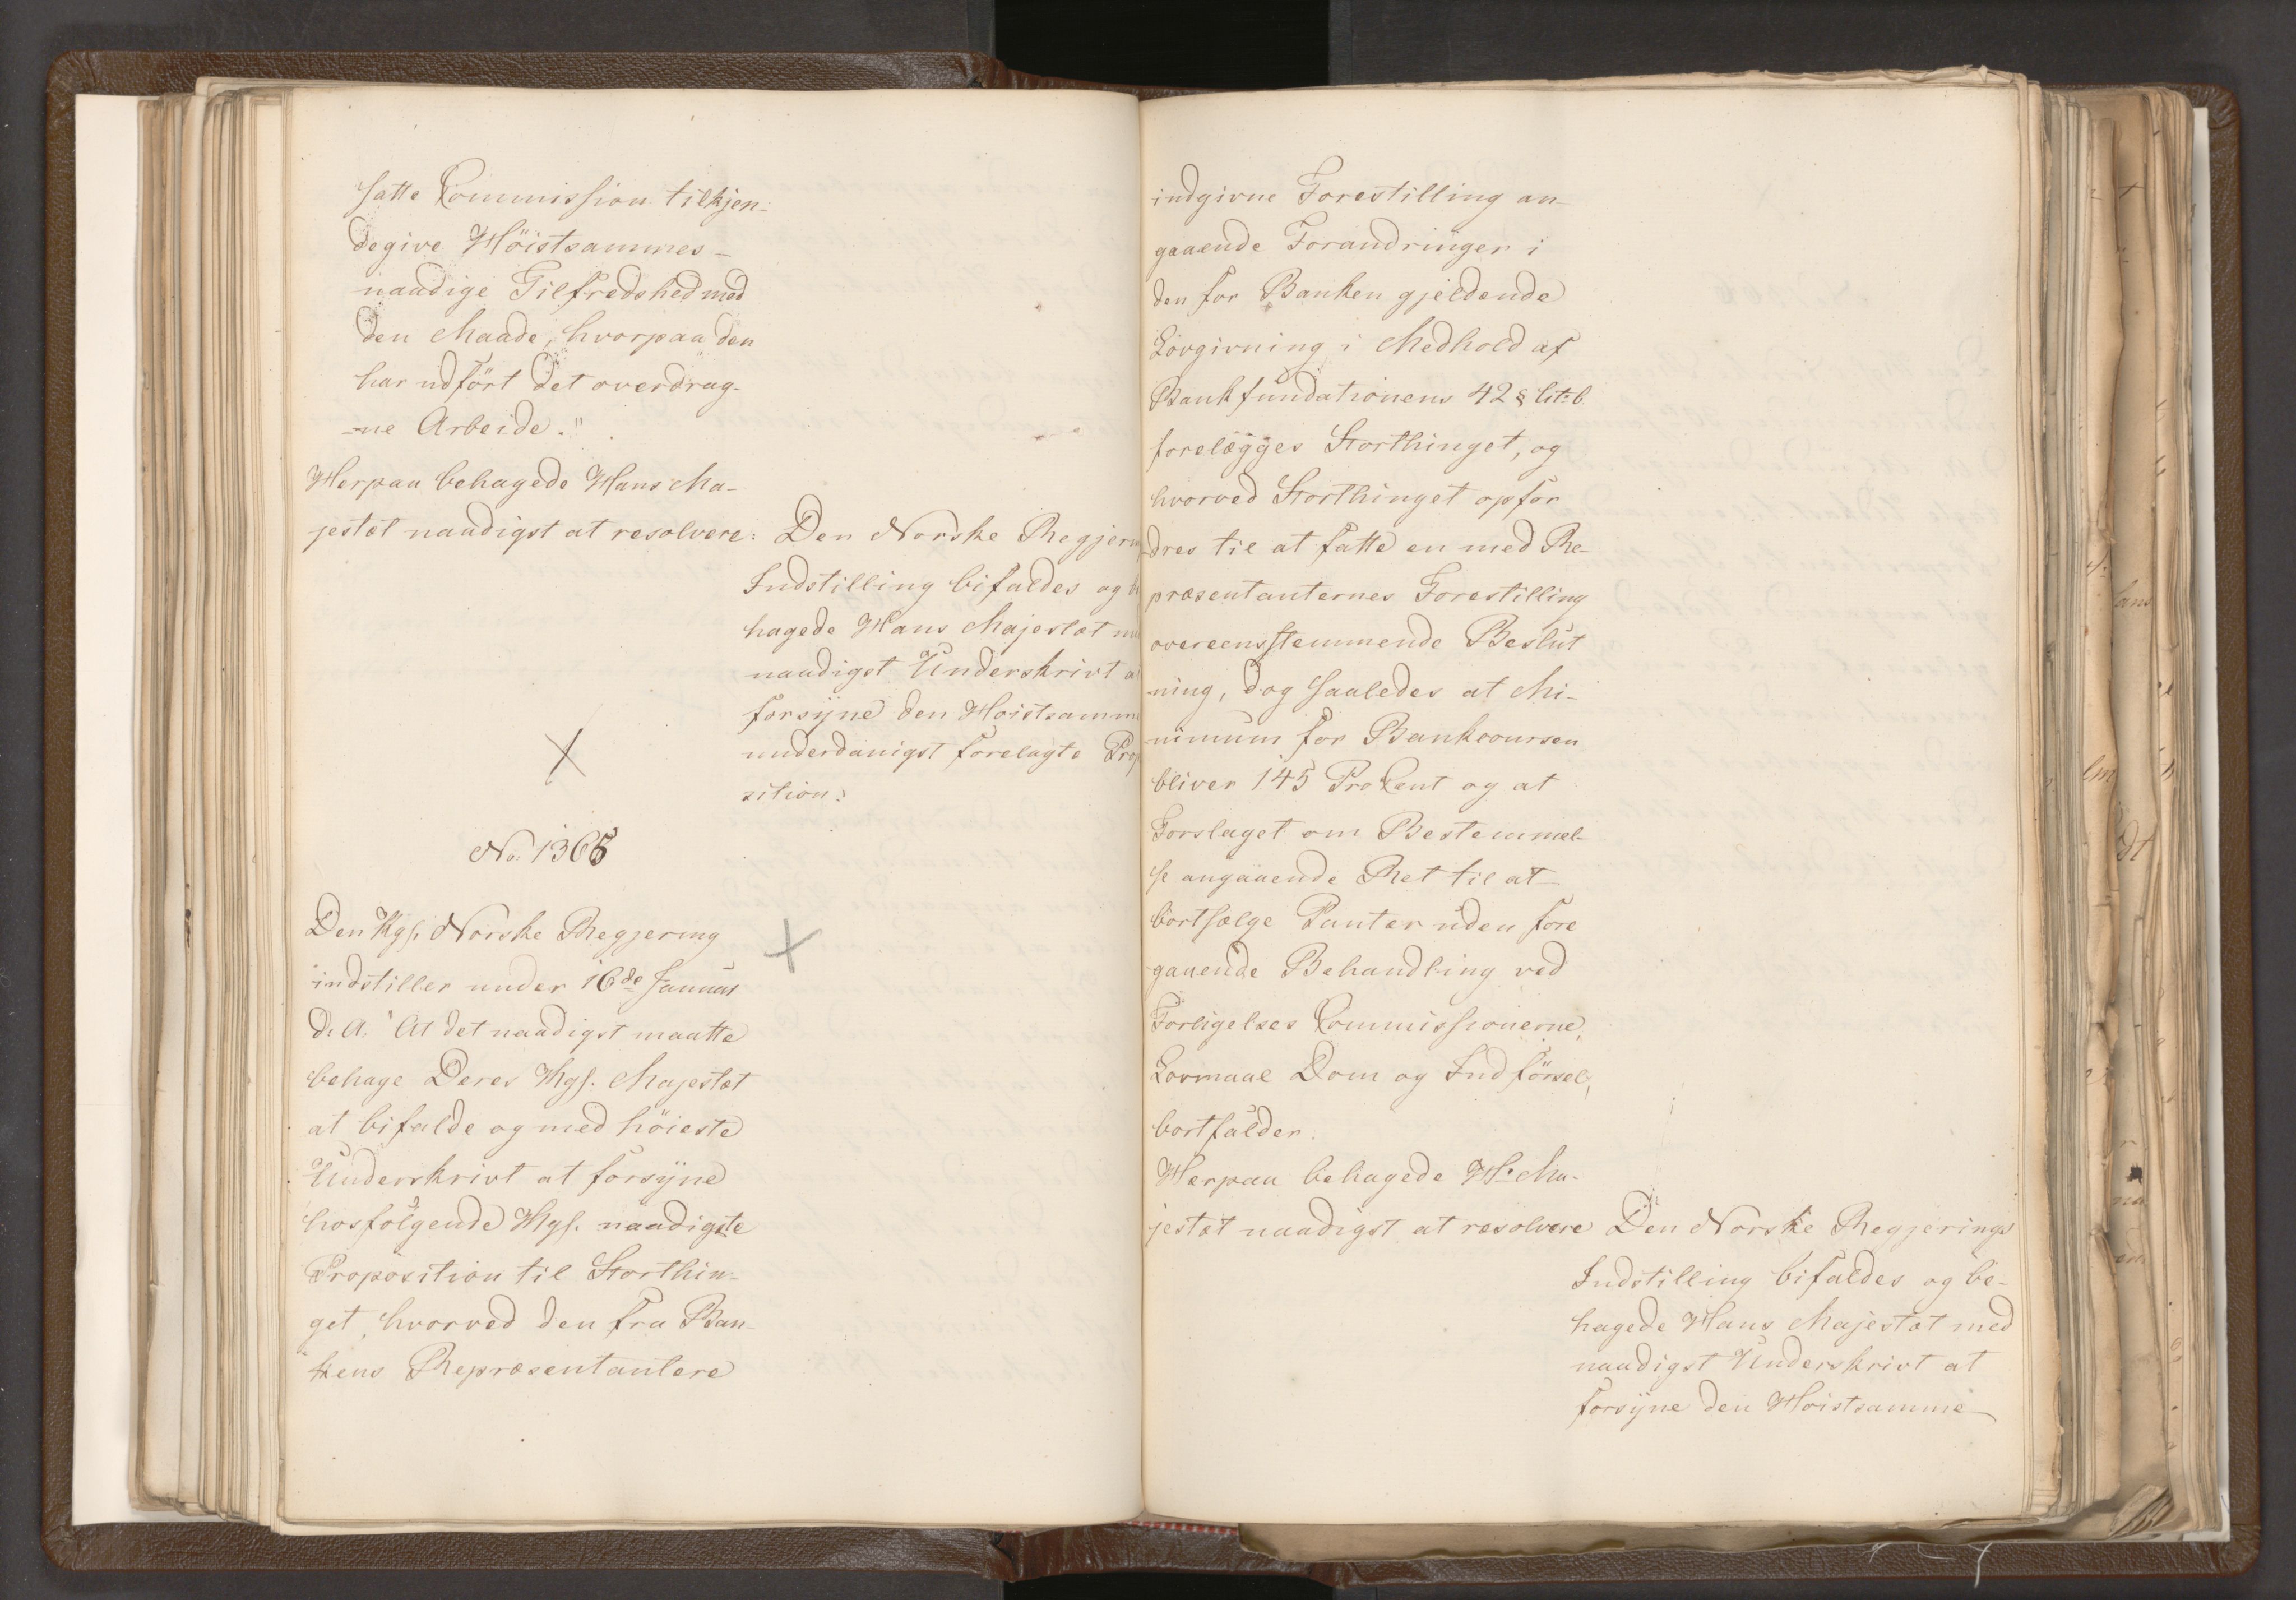 satte Commission tilkjen-
degive Höistsammes-
naadige Tilfredshed med
den Maade, hvorpaa den
har udfört det overdrag-
-ne Arbeide."
Herpaa behagede Hans Ma-
jestæt naadigst at resolvere:
Den Norske Regjerin
Indstilling bifaldes og be
hagede Hans Majestæt m
naadigst Underskrivt a
forsÿne den Höistsamme
underdanigst forelagte Prop
sition:
No. 1365
Den Kgs. Norske Regjering
indstiller under 16de Januar
d: A: "At det naadigst maatte
behage Deres Kgs. Majestæt
at bifalde og med höieste
Underskrivt at forsÿne
hosfölgende Kgs. naadigste
Proposition til Storthin-
get, hvorved den fra Ban-
kens Repræsentantere
indgivne Forestilling an-
gaaende Forandringer i
den for Banken gjeldende
Lovgivning i Medhold af
Bankfundationens 42 § lit: b.
forelægges Storthinget, og
hvorved Storthinget opfor
dres til at fatte en med Re-
præsentanternes Forestilling
overeensstemmende Beslut
ning, dog saaledes at Mi-
nimum for Bankcoursen
bliver 145 ProCent og at
Forslaget om Bestemmel-
se angaaende Ret til at
bortsælge Panter uden fore
gaaende Behandling ved
Forligelses Commissionerne,
Lovmaal Dom og Indförsel,
bortfalder.
Herpaa behagede H: Ma-
jestæt naadigst at resolvere
Den Norske Regjerings
Indstilling bifaldes og be-
hagede Hans Majestæt med
naadigst Underskrivt at
forsÿne den Höistsamme